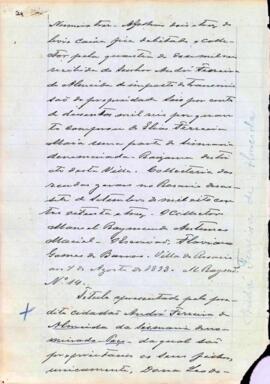 Numero tres. A folhas dois atraz do
livro caixa fica debitado o Collec-
tor pela quantia de dose mil reis
recebida do Senhor André Ferreira
de Almeida de imposto de transmis-
são de propriedade seis por cento
de dusentos mil reis por quanto
comprou de Elias Ferreira
Maia uma parte de sismaria
denominada Bagana
desta Villa. Collectoria das
rendas geraes no Rosario deze-
sete de Setembro de mil oito cen-
tos setenta e hum. O Collector
Manoel Raymundo Antunes
Maciel. O Escrivão, Flaviano
Gomes de Barros. Villa do Rosario
em 7 de Agosto de 1893.
Nº 14.
Titulo apresentado pelo pre-
dito cidadão André Ferreira de
Almeida da Sismaria deno-
minada da qual são
proprietarios os seus filhos,
unicamente, Dona